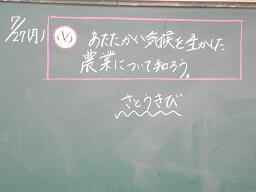 7/27(月)
め あたたかい気候を生かした
農業について知ろう。
さとうきび